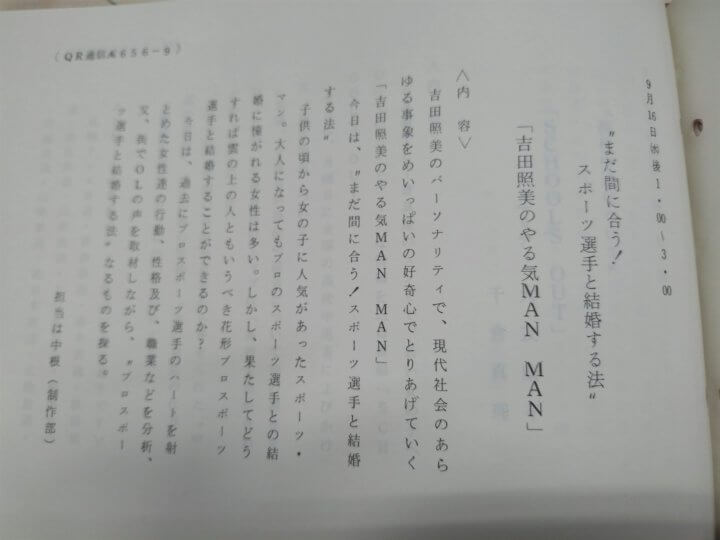 9月16日(水)後1・00〜3・00
"まだ間に合う!
スポーツ選手と結婚する法"
「吉田照美のやる気MAN MAN」
〈内容〉
吉田照美のパーソナリティで、現代社会のあら
ゆる事象をめいっぱいの好奇心でとりあげていく
「吉田照美のやる気MAN MAN」
今日は、"まだ間に合う!スポーツ選手と結婚
する法"
子供の頃から女の子に人気があったスポーツ・
マン。大人になってもプロのスポーツ選手との結
婚に憧がれる女性は多い。しかし、果たしてどう
すれば雲の上の人ともいうべき花形プロスポーツ
選手と結婚することができるのか?
今日は、過去にプロスポーツ選手のハートを射
とめた女性達の行動、性格及び、職業などを分析、
又、街でOLの声を取材しながら、"プロスポー
ツ選手と結婚する法"なるものを探る。
担当は中根(制作部)
(QR通信№656-9)